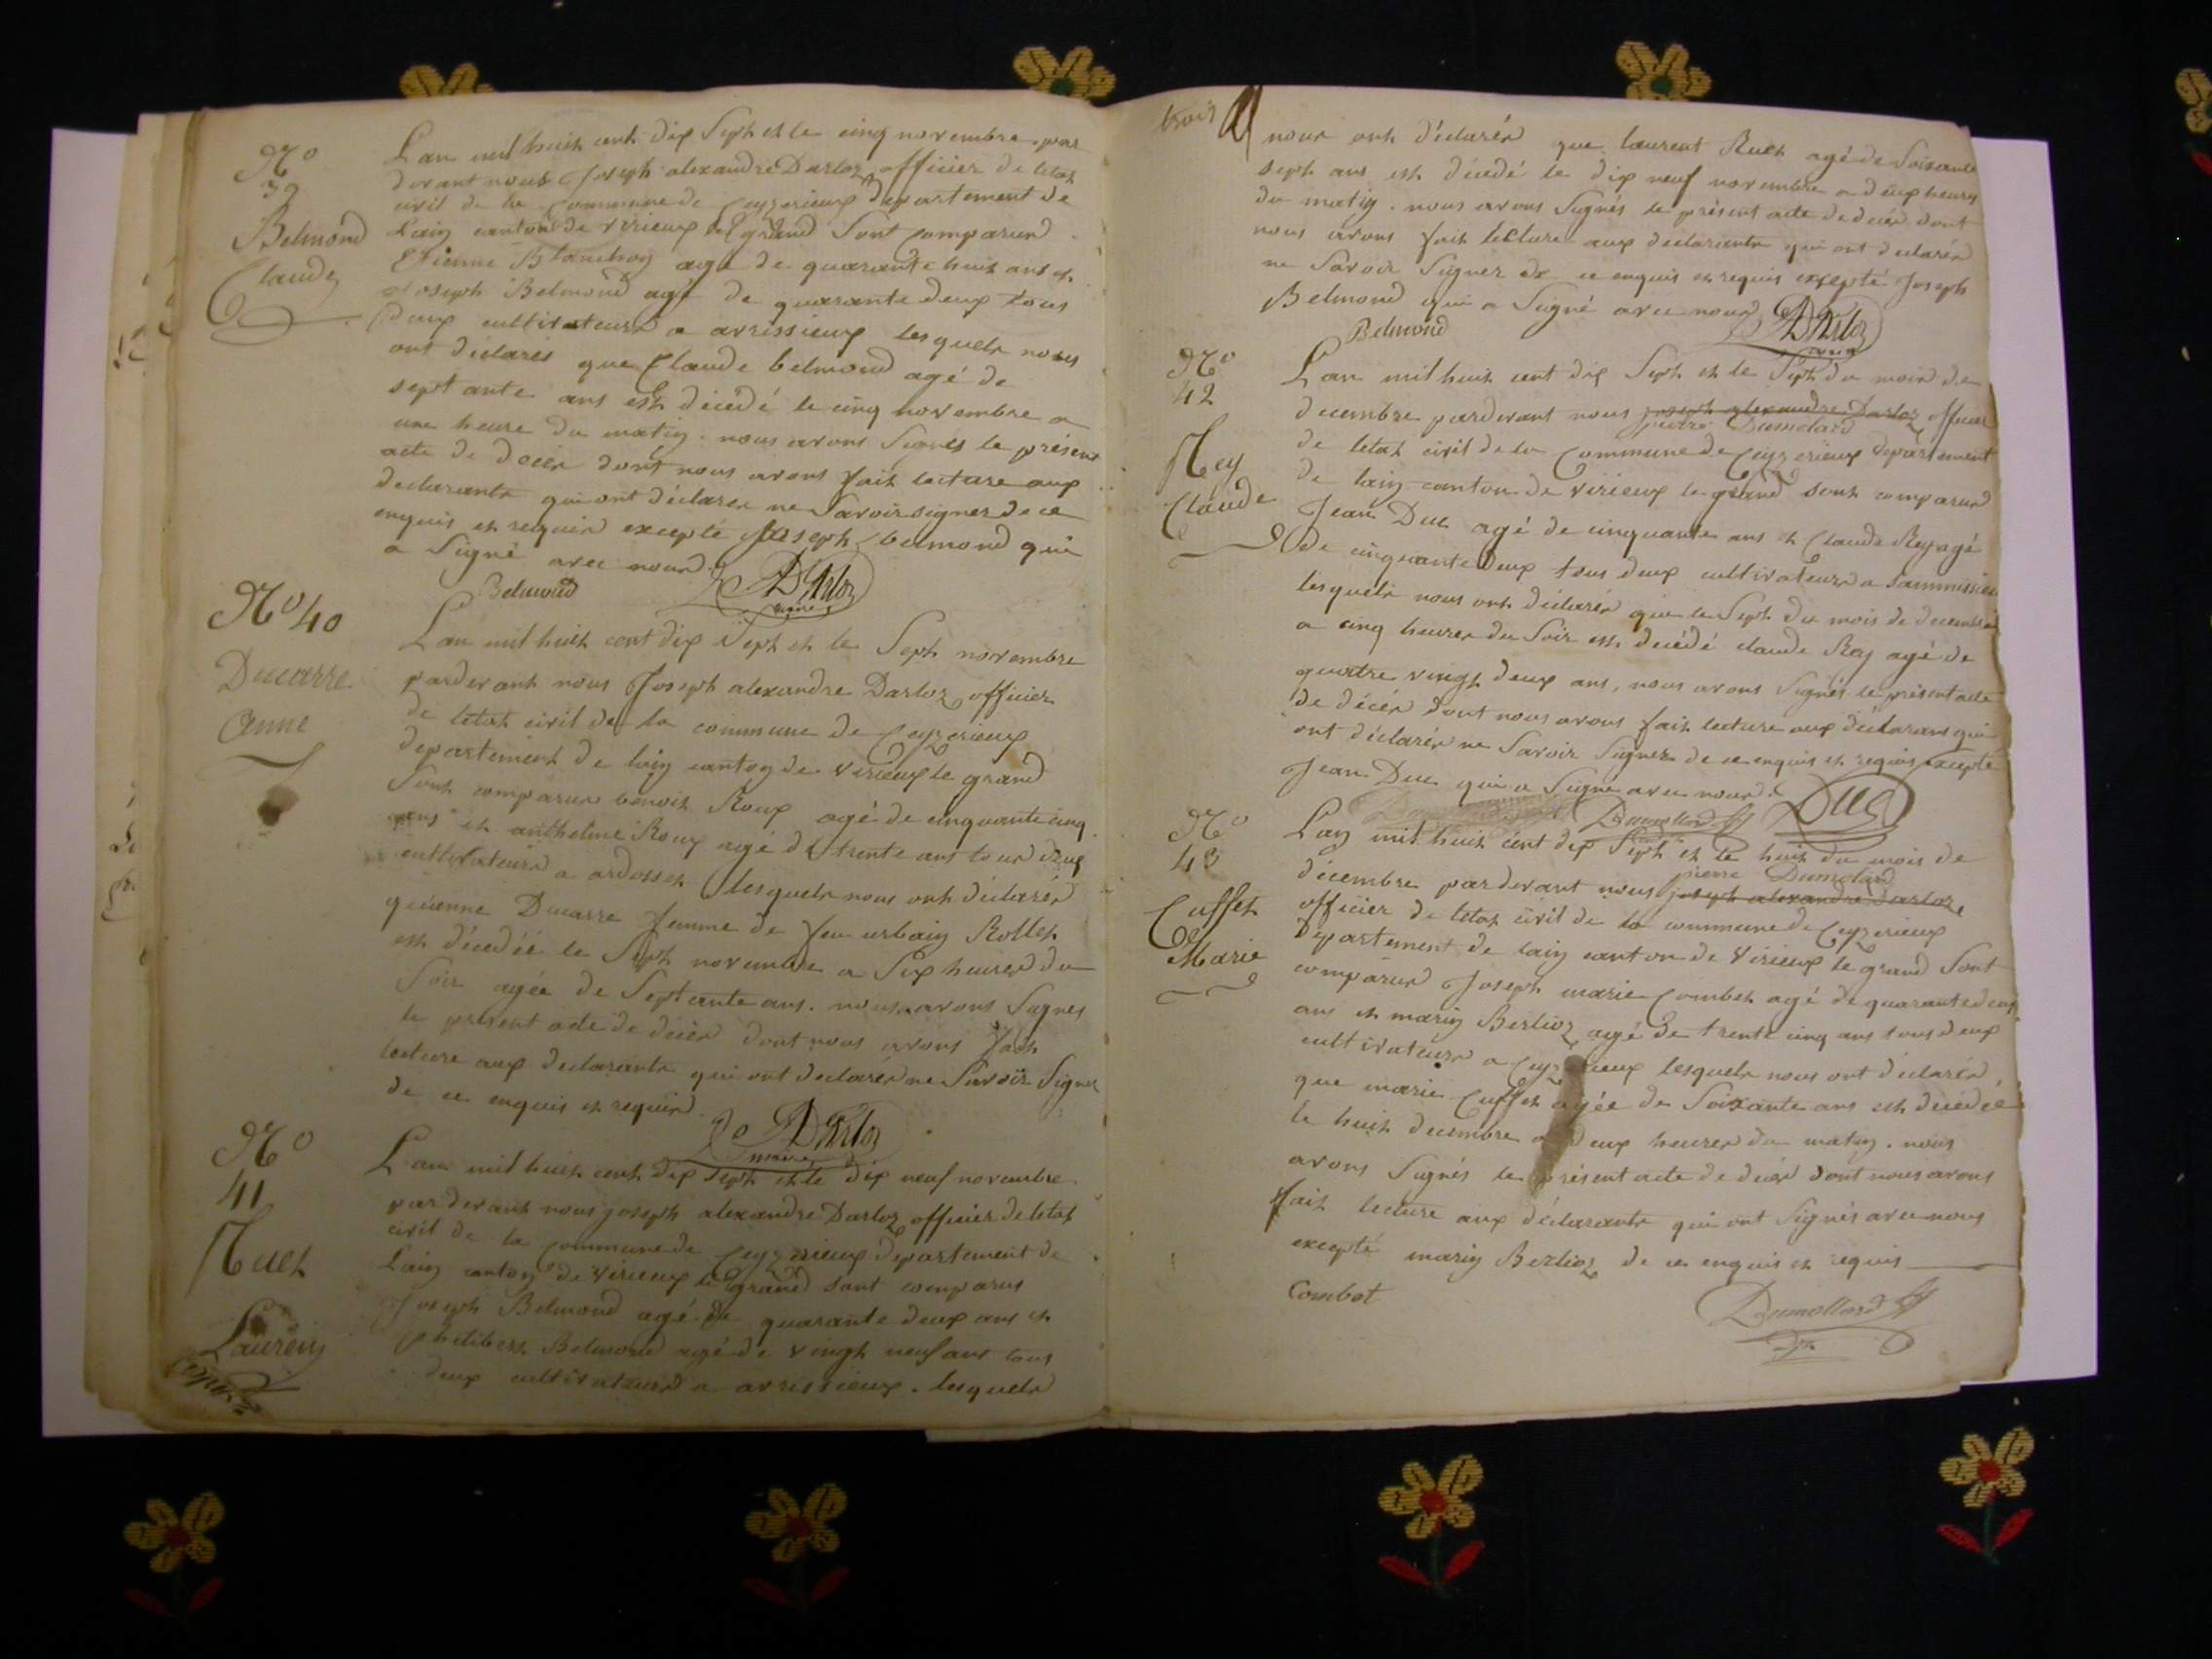 N° 39
Belmond
Claude
Lan mil huit cent dix Sept et le cinq novembre par
devant nous Joseph alexandre Darloz officier de letat
civil de la Commune de Ceyzerieux Departement de
Lain canton de virieux le grand Sont comparus
Etienne Blanchoz agé de quarante huit ans et
Joseph Belmond agé de quarante deux tous
deux cultivateurs a avrissieux lesquels nous
ont déclarés que Claude belmond agé de
septante ans est décédé le cinq novembre a
une heure du matin. nous avons Signés le présent
acte de décès dont nous avons fait lecture aux
declarants qui ont déclarer ne Savoir signer de ce
enquis et requis excepté Joseph belmond qui
a Signé avec nous.
Belmond Darloz
maire
N° 40
Ducarre
Anne
Lan mil huit cent dix Sept et le Sept novembre
pardevant nous Joseph alexandre Darloz officier
de letat civil de la commune de Ceyzerieux
departement de lain canton de virieux le grand
Sont comparus benoit Roux agé de cinquante cinq
ans et anthelme Roux agé de trente ans tous deux
cultivateurs a ardosset lesquels nous ont déclarés
quanne Ducarre femme de feu urbain Rollet
est décédée le Sept novembre a Six heures du
Soir agée de Septante ans. nous avons Signés
le présent acte de décès dont nous avons fait
lecture aux declarants qui ont declarés ne Savoir Signer
de ce enquis et requis.
Darloz
maire
N°
41
Ruet
Laurent
Lan mil huit cent dix sept et le dix neuf novembre
pardevant nous joseph alexandre Darloz officier de letat
civil de la commune de Ceyzerieux departement de
Lain canton de virieux le grand sont comparus
Joseph Belmond agé de quarante deux ans et
philibert Belmond agé de vingt neuf ans tous
deux cultivateurs a avrissieux. lesquels
nous ont déclarés que laurent Ruet agé de Soixante
sept ans est décédé le dix neuf novembre a deux heures
du matin. nous avons Signés le présent acte de décès dont
nous avons fait lecture aux declarants qui ont declarés
ne Savoir Signer de ce enquis et requis excepté Joseph
Belmond qui a Signé avec nous
Belmond Darloz
maire
N°
42
Rey
Claude
Lan mil huit cent dix Sept et le Sept du mois de
decembre pardevant nous joseph alexandre Darloz officier
pierre Dumolard
de letat civil de la Commune de Ceyzerieux departement
de lain canton de virieux le grand sont comparus
Jean Duc agé de cinquante ans et Claude Rey agé
de cinquante deux tous deux cultivateurs a
lesquels nous ont déclarés que le Sept du mois de decembre
a cinq heures du Soir est décédé claude Rey agé de
quatre vingt deux ans, nous avons Signés le présent acte
de décès dont nous avons fait lecture aux déclarans qui
ont déclarés ne Savoir Signer de ce enquis et requis excepté
Jean Duc qui a Signé avec nous.
Dumollard Duc
N°
43
Cuffet
Marie
Lan mil huit cent dix Sept et le huit du mois de
pierre Dumolard
décembre pardevant nous joseph alexandre darloz
officier de letat civil de la commune de Ceyzerieux
departement de lain canton de virieux le grand Sont
comparus Joseph marie Combet agé de quarante deux
ans et marin Berlioz agé de trente cinq ans tous deux
cultivateurs a lesquels nous ont déclarés
que marie Cuffet agée de Soixante ans est décédée
le huit decembre a deux heures du matin. nous
avons Signés le présent acte de décès dont nous avons
fait lecture aux déclarants qui ont Signés avec nous
excepté marin Berlioz de ce enquis et requis
Combet
Dumollard